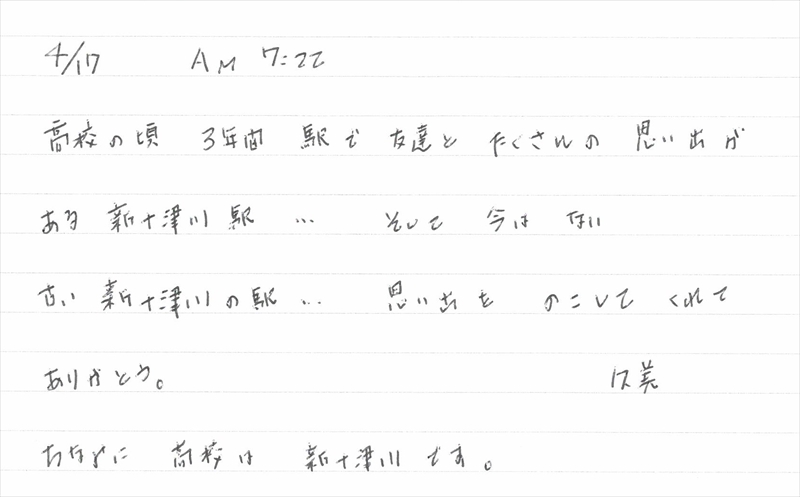 4/17 AM 7:22
高校の頃 3年間 駅で 友達と たくさんの 思い出が
ある 新十津川駅 … そして 今は ない
古い 新十津川の駅… 思い出を のこして くれて
ありがとう。 久美
ちなみに 高校は 新十津川です。